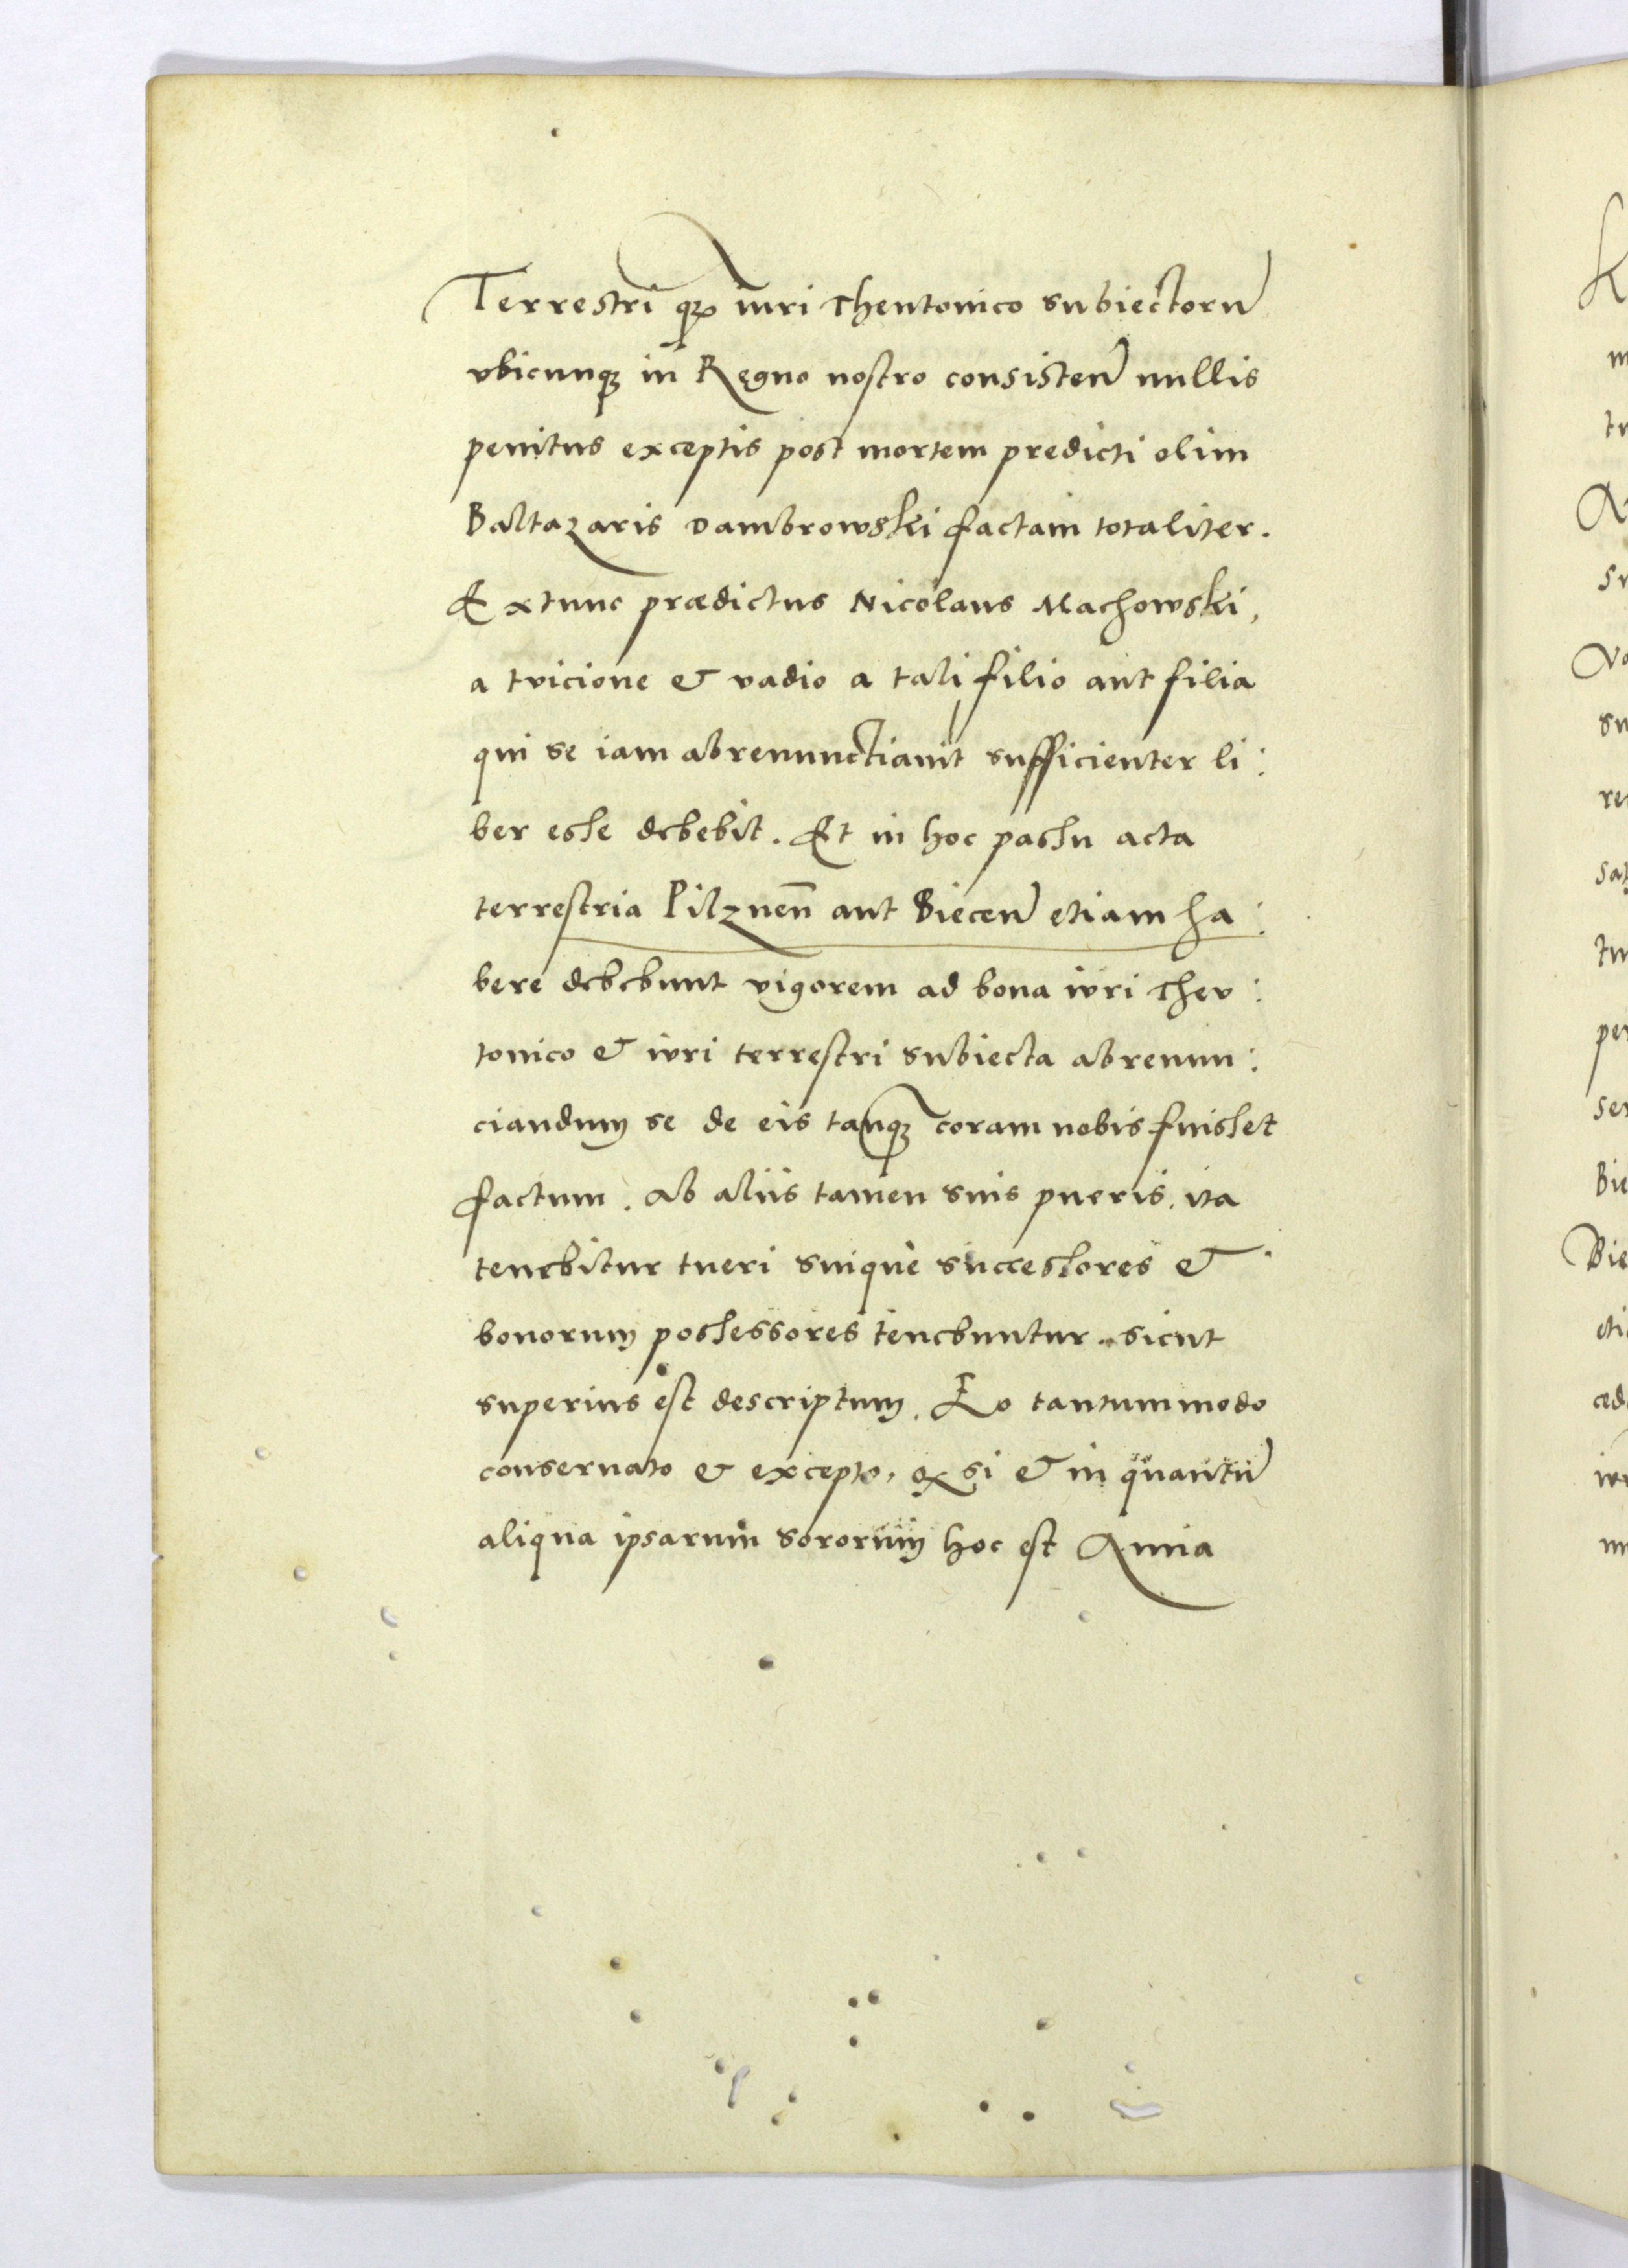 Terrestri qȝ iuri Theutonico subiectorū
vbicunqȝ in Regno nostro consisteñ nullis
penitus exceptis post mortem predicti olim
Baltazaris Dambrowski factam totaliter.
Extunc prædictus Nicolaus Machowski,
a tuicione & vadio a tali filio aut filia
qui se iam abrenunctiauit sufficienter li:
ber esse debebit. Et in hoc passu acta
terrestria Pilzneñ aut Bieceñ etiam ha:
bere debebunt vigorem ad bona iuri Theu:
tonico & iuri terrestri subiecta abrenun:
ciandum se de eis tanqȝ coram nobis fuisset
factum. Ab aliis tamen suis pueris. ita
tenebitur tueri suique successores &
bonorum possessores tenebuntur. sicut
superius est descriptum. Eo tantummodo
conseruato & excepto, qȝ si & in quantū
aliqua ipsarum sororum hoc est Anna